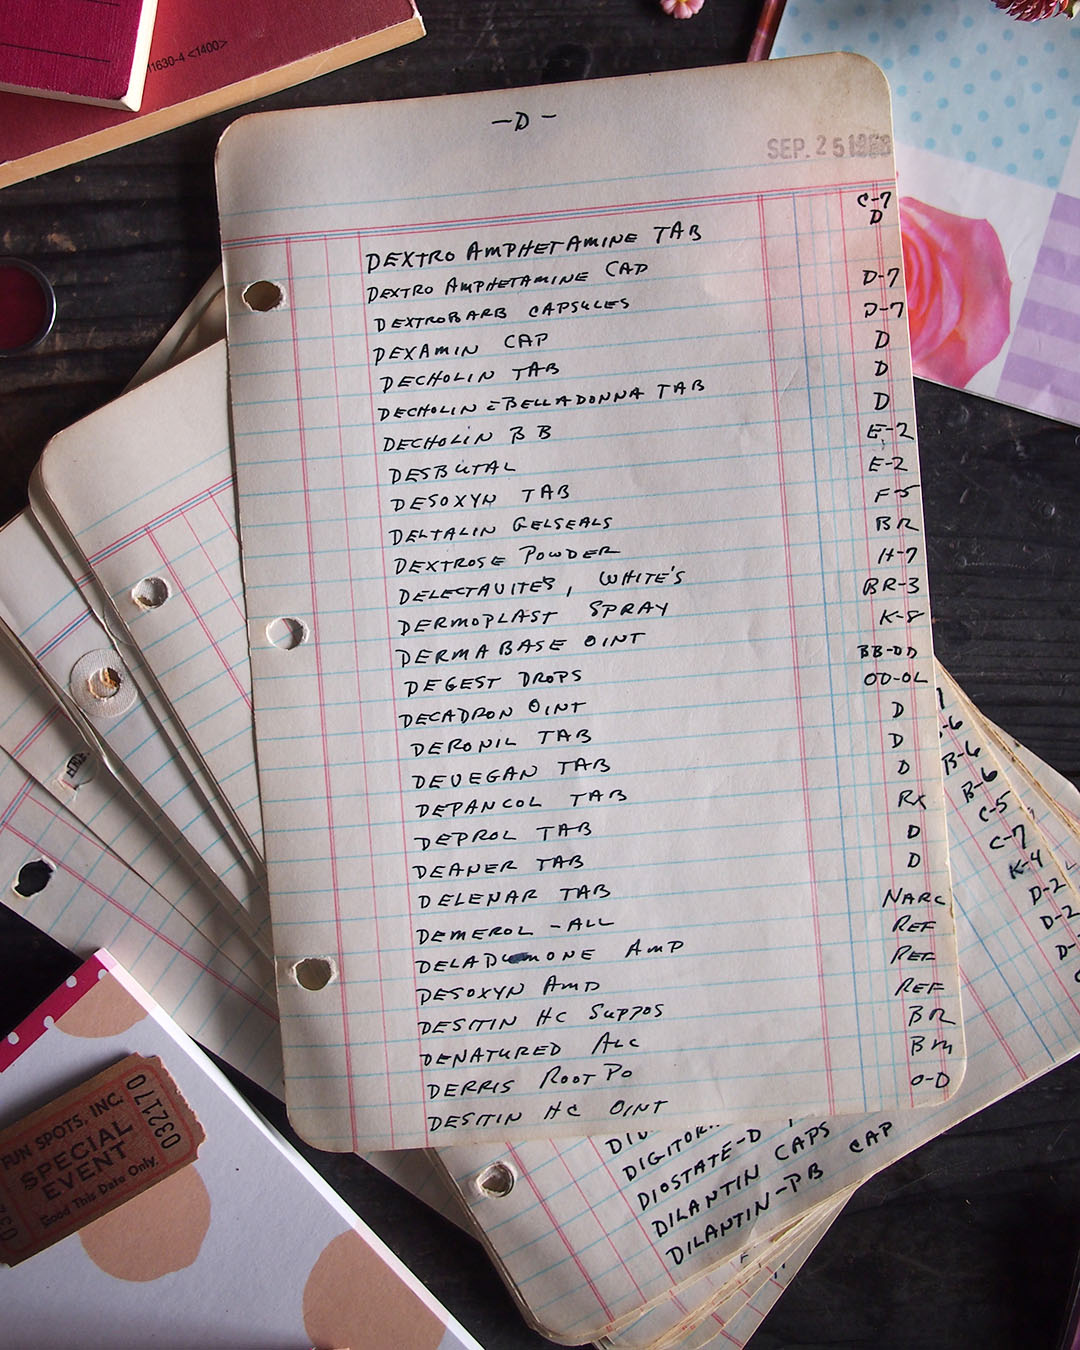 11630-4 <1400>
—D—
SEP. 25 1963
C-7
DEXTRO AMPHETAMINE TAB D
DEXTRO AMPHETAMINE CAP
DEXTROBARB CAPSULES D-7
DEXAMIN CAP D-7
DECHOLIN TAB D
DECHOLIN C BELLADONNA TAB D
DECHOLIN BB D
DESBUTAL E-2
DESOXYN TAB E-2
DELTALIN GELSEALS F-5
DEXTROSE POWDER BR
DELECTAVITES, WHITE'S H-7
DERMOPLAST SPRAY BR-3
DERMABASE OINT K-8
DEGEST DROPS BB-OD
DECADRON OINT OD-OL
DERONIL TAB D
DEVEGAN TAB D
DEPANCOL TAB D
DEPROL TAB RX
DEANER TAB D
DELENAR TAB D
DEMEROL - ALL NARC
DELADUMONE AMP REF
DESOXYN AMP REF
DESITIN HC SUPPOS REF
DENATURED ALC BR
DERRIS ROOT PO BM
DESITIN HC OINT O-D
B-6
B-6
C-5
C-7
K-4
D-2
D-2
DIOSTATE-D
DILANTIN CAPS
DILANTIN-PB CAP
FUN SPOTS, INC.
SPECIAL
EVENT
Good This Date Only.
032170